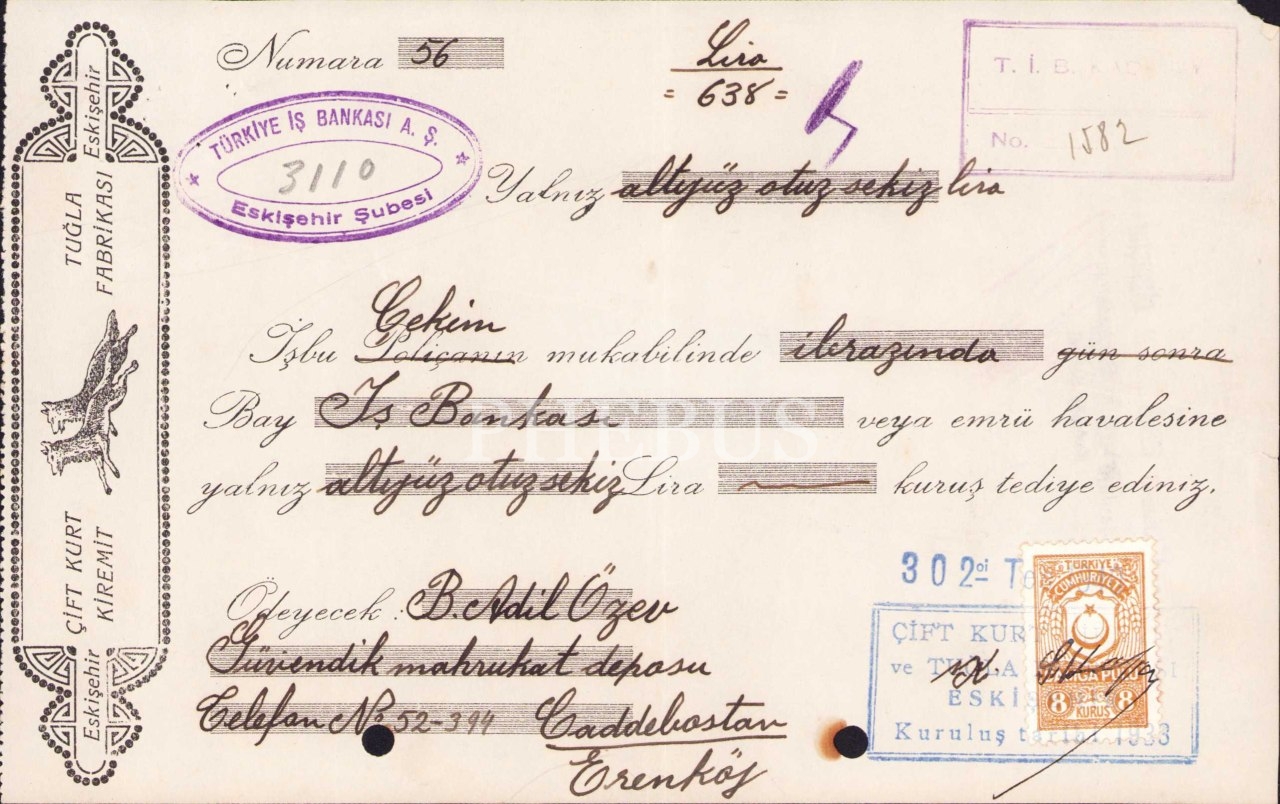 Numara 56
Lira
= 638 =
T. İ. B.
No. 1582
TÜRKİYE İŞ BANKASI A. Ş.
3110
Eskişehir Şubesi
Yalnız altıyüz otuz sekiz lira
Çekim
İşbu Poliçanın mukabilinde ibrazında gün sonra
Bay İş Bankası veya emrü havalesine
yalnız altıyüz otuz sekiz Lira — kuruş tediye ediniz.
Ödeyecek : B. Adil Özev
Güvendik mahrukat deposu
Telefon No 52-394 Caddebostan
Erenköy
30 2oi Te
ÇİFT KUR
ve TU LA
ESKİŞ
Kuruluş tarihi 1933
TÜRKİYE
CUMHURİYETİ
DAMGA PULU
8 KURUŞ 8
Eskişehir
TUĞLA
FABRİKASI
ÇİFT KURT
KİREMİT
Eskişehir
PHEBUS